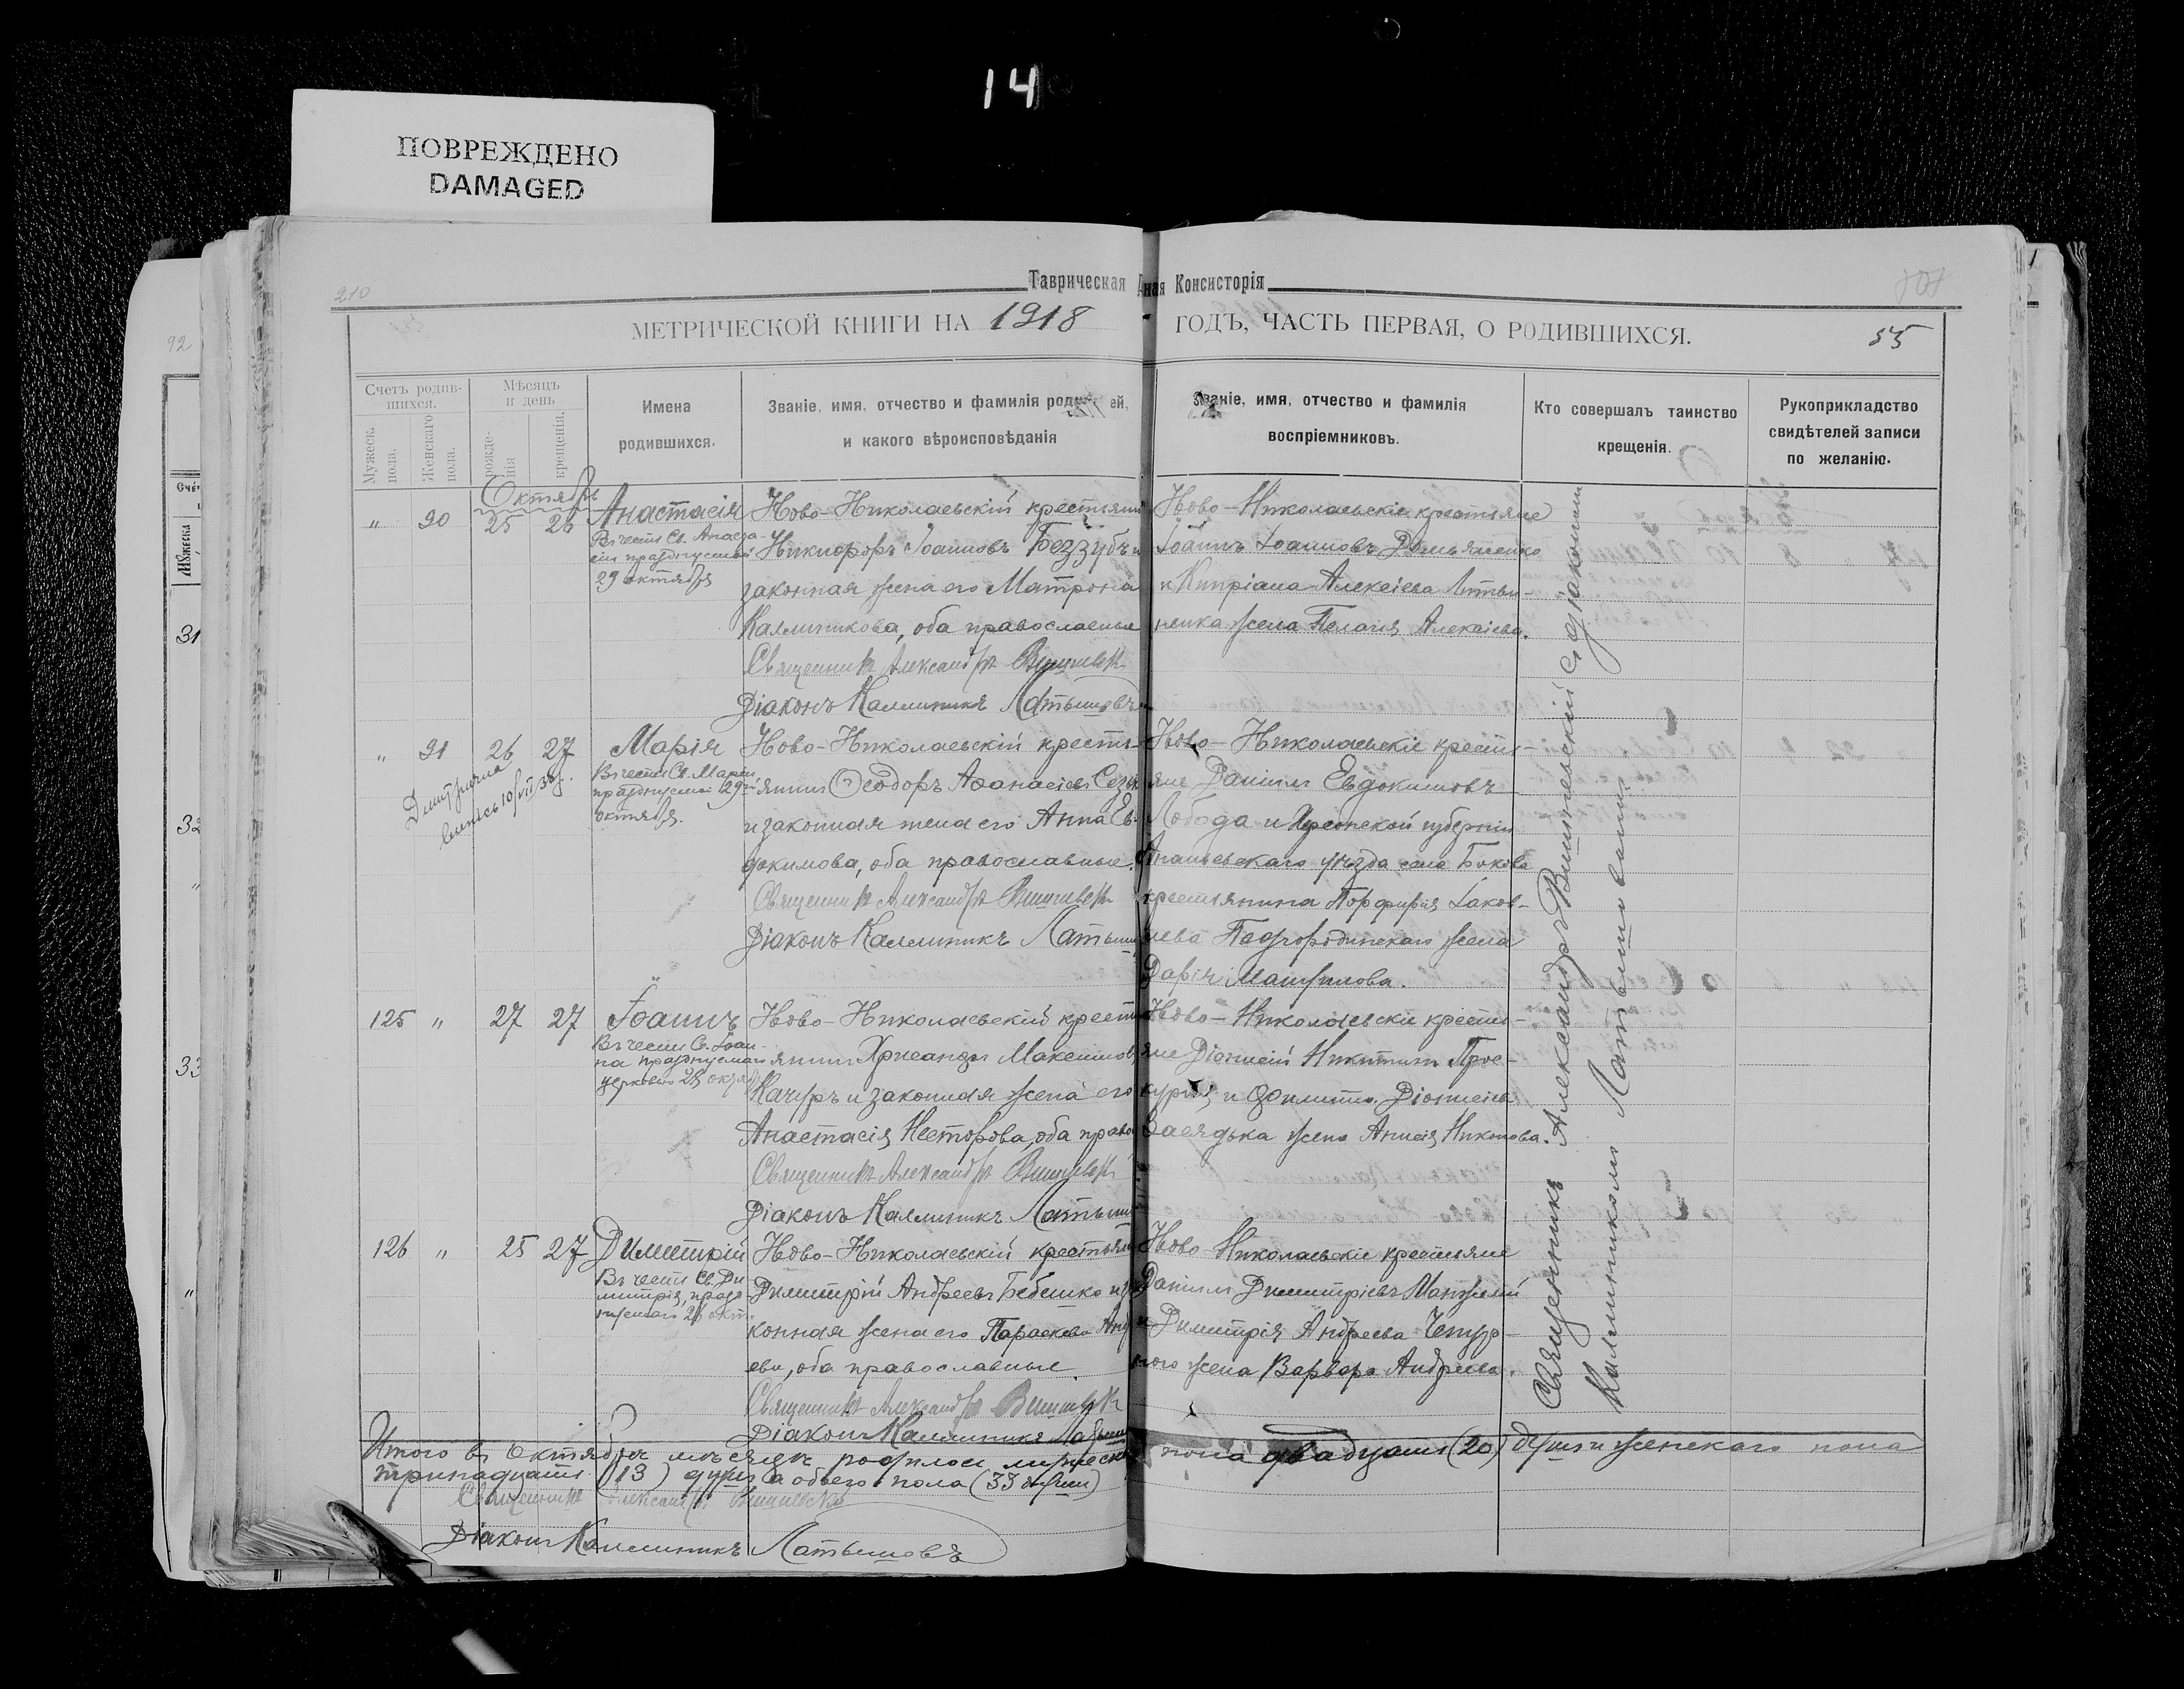 14
ПОВРЕЖДЕНО
DAMAGED
210
92
Таврическая
ная Консисторія
МЕТРИЧЕСКОЙ КНИГИ НА 1918
ГОДЪ, ЧАСТЬ ПЕРВАЯ, О РОДИВШИХСЯ.
55
Счетъ родив-
шихся.
Мужеск. пола.
Женскаго пола.
Мѣсяцъ
и день
рожде-
нія
крещенія.
Имена
родившихся.
Званіе, имя, отчество и фамилія ей,
и какого вѣроисповѣданія
Званіе, имя, отчество и фамилія
воспріемниковъ.
Кто совершалъ таинство
крещенія.
Рукоприкладство
свидѣтелей записи
по желанію.
Октябрь
" 90 25 26 Анастасія
Въ честь Св. Анаста-
сіи празднуемой
29 октября
Ново-Николаевскій крестьянин
Никифоръ Іоанновъ Беззубъ и
законная жена его Матрона
Каллиникова, оба православные
Священникъ Александръ Вишневск
Діаконъ Каллиникъ Латышовъ
Ново-Николаевскіе крестьяне
Іоаннъ Іоанновъ Демьяненко
и Кипріана Алексіева Литви-
ненка жена Пелагія Алексіева.
" 91 26 27 Марія
Въ честь Св. Маріи
празднуемой 29го
октября.
Ново-Николаевскій кресть-
янинъ Ѳеодоръ Аѳанасіевъ
и законная жена его Анна Ев-
докимова, оба православные.
Священникъ Александръ Вишневск
Діаконъ Каллиникъ Латыш
Ново-Николаевскіе кресть-
яне Даніилъ Евдокимовъ
Лобода и Херсонской губерніи
Ананьевскаго уѣзда села Бокова
крестьянина Порфирія Іаков-
лева Подгородинскаго жена
Дарія
125 " 27 27 Іоаннъ
Въ честь Св. Іоан-
на празднуемаго
церковью 28 октяб
Ново-Николаевскій крест
янинъ Хрисанфъ Максимов
Качуръ и законная жена его
Анастасія Несторова, оба право
Священникъ Александръ Вишневск
Діаконъ Каллиникъ Латыш
Ново-Николаевскіе кресть-
яне Діонисій Никитинъ Прос-
и Діонисіева
жена Анисія Никонова.
126 " 25 27 Димитрій
Въ честь Св. Ди-
митрія, празд-
нуемаго 26 окт.
Ново-Николаевскій крестьян
Димитрій Андреевъ Бебешко и за
конная жена его Параскева Анд
ева, оба православные.
Священникъ Александръ Вишневск
Діаконъ Каллиникъ Латыш
Ново-Николаевскіе крестьяне
Даніилъ Димитріевъ
и Димитрія Андреева
ного жена Варвара Андреева.
Священникъ Александръ Вишневскій съ діакономъ
Каллиникомъ Латышовымъ
Итого въ Октябрѣ мѣсяцѣ родилось мужеск
пола двадцать (20) душъ и женскаго пола
тринадцать (13) душъ а обоего пола (33 души)
Священникъ Александръ Вишневскій
Діаконъ Каллиникъ Латышовъ
31
32
33